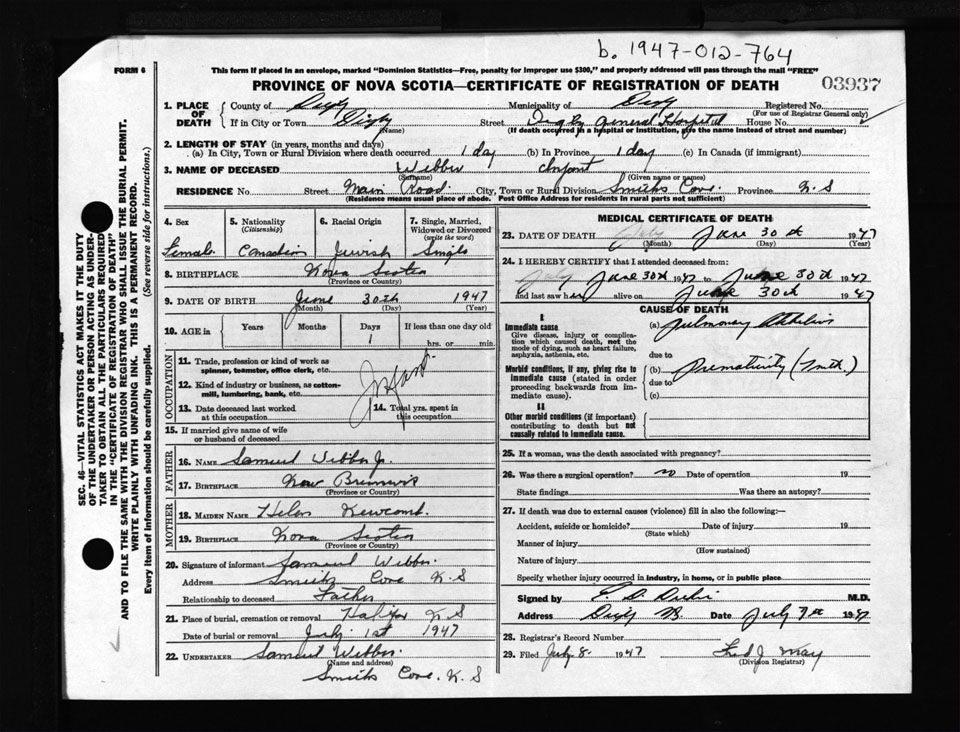 b. 1947-012-764
FORM 6
This form if placed in an envelope, marked "Dominion Statistics—Free, penalty for improper use $300," and properly addressed will pass through the mail "FREE"
PROVINCE OF NOVA SCOTIA—CERTIFICATE OF REGISTRATION OF DEATH
03937
1. PLACE OF DEATH County of Digby Municipality of Digby Registered No.
(For use of Registrar General only)
If in City or Town Digby Street Digby General Hospital House No.
(Name) (If death occurred in a hospital or institution, give the name instead of street and number)
2. LENGTH OF STAY (in years, months and days)
(a) In City, Town or Rural Division where death occurred 1 day (b) In Province 1 day (c) In Canada (if immigrant)
3. NAME OF DECEASED Webber Infant
(Surname) (Given name or names)
RESIDENCE No. Street Main Road City, Town or Rural Division Smiths Cove. Province N S
(Residence means usual place of abode. Post Office Address for residents in rural parts not sufficient)
4. Sex 5. Nationality 6. Racial Origin 7. Single, Married, Widowed or Divorced
(Citizenship) (write the word)
Female Canadian Jewish Single
8. BIRTHPLACE Nova Scotia
(Province or Country)
9. DATE OF BIRTH June 30th 1947
(Month) (Day) (Year)
10. AGE in Years Months Days If less than one day old
1 hrs. or min.
OCCUPATION
11. Trade, profession or kind of work as
spinner, teamster, office clerk, etc.
12. Kind of industry or business, as cotton-
mill, lumbering, bank, etc.
13. Date deceased last worked
at this occupation
14. Total yrs. spent in
this occupation
15. If married give name of wife
or husband of deceased
FATHER
16. NAME Samuel Webber Jr.
17. BIRTHPLACE New Brunswick
(Province or Country)
MOTHER
18. MAIDEN NAME Helen Newcomb.
19. BIRTHPLACE Nova Scotia
(Province or Country)
20. Signature of informant Samuel Webber.
Address Smiths Cove N S
Relationship to deceased Father
21. Place of burial, cremation or removal Halifax N S
Date of burial or removal July 1st 1947
22. UNDERTAKER Samuel Webber
(Name and address)
Smiths Cove. N. S
MEDICAL CERTIFICATE OF DEATH
23. DATE OF DEATH July June 30th 1947
(Month) (Day) (Year)
24. I HEREBY CERTIFY that I attended deceased from:
July June 30th 1947 to June 30th 1947
and last saw her alive on June 30th 1947
CAUSE OF DEATH
I
Immediate cause
Give disease, injury or complication which caused death, not the mode of dying, such as heart failure, asphyxia, asthenia, etc.
(a) Pulmonary
due to
Morbid conditions, if any, giving rise to immediate cause (stated in order proceeding backwards from immediate cause).
(b) Prematurity
due to
(c)
II
Other morbid conditions (if important) contributing to death but not causally related to immediate cause.
25. If a woman, was the death associated with pregnancy?
26. Was there a surgical operation? no Date of operation 19
State findings Was there an autopsy?
27. If death was due to external causes (violence) fill in also the following:—
Accident, suicide or homicide? Date of injury 19
(State which)
Manner of injury
(How sustained)
Nature of injury
Specify whether injury occurred in industry, in home, or in public place
Signed by M.D.
Address Digby Date July 7th 1947
28. Registrar's Record Number
29. Filed July 8 1947 Fred J May
(Division Registrar)
SEC. 46—VITAL STATISTICS ACT MAKES IT THE DUTY
OF THE UNDERTAKER OR PERSON ACTING AS UNDER-
TAKER TO OBTAIN ALL THE PARTICULARS REQUIRED
IN THE "CERTIFICATE OF REGISTRATION OF DEATH"
AND TO FILE THE SAME WITH THE DIVISION REGISTRAR WHO SHALL ISSUE THE BURIAL PERMIT.
WRITE PLAINLY WITH UNFADING INK. THIS IS A PERMANENT RECORD.
Every item of information should be carefully supplied. (See reverse side for instructions.)